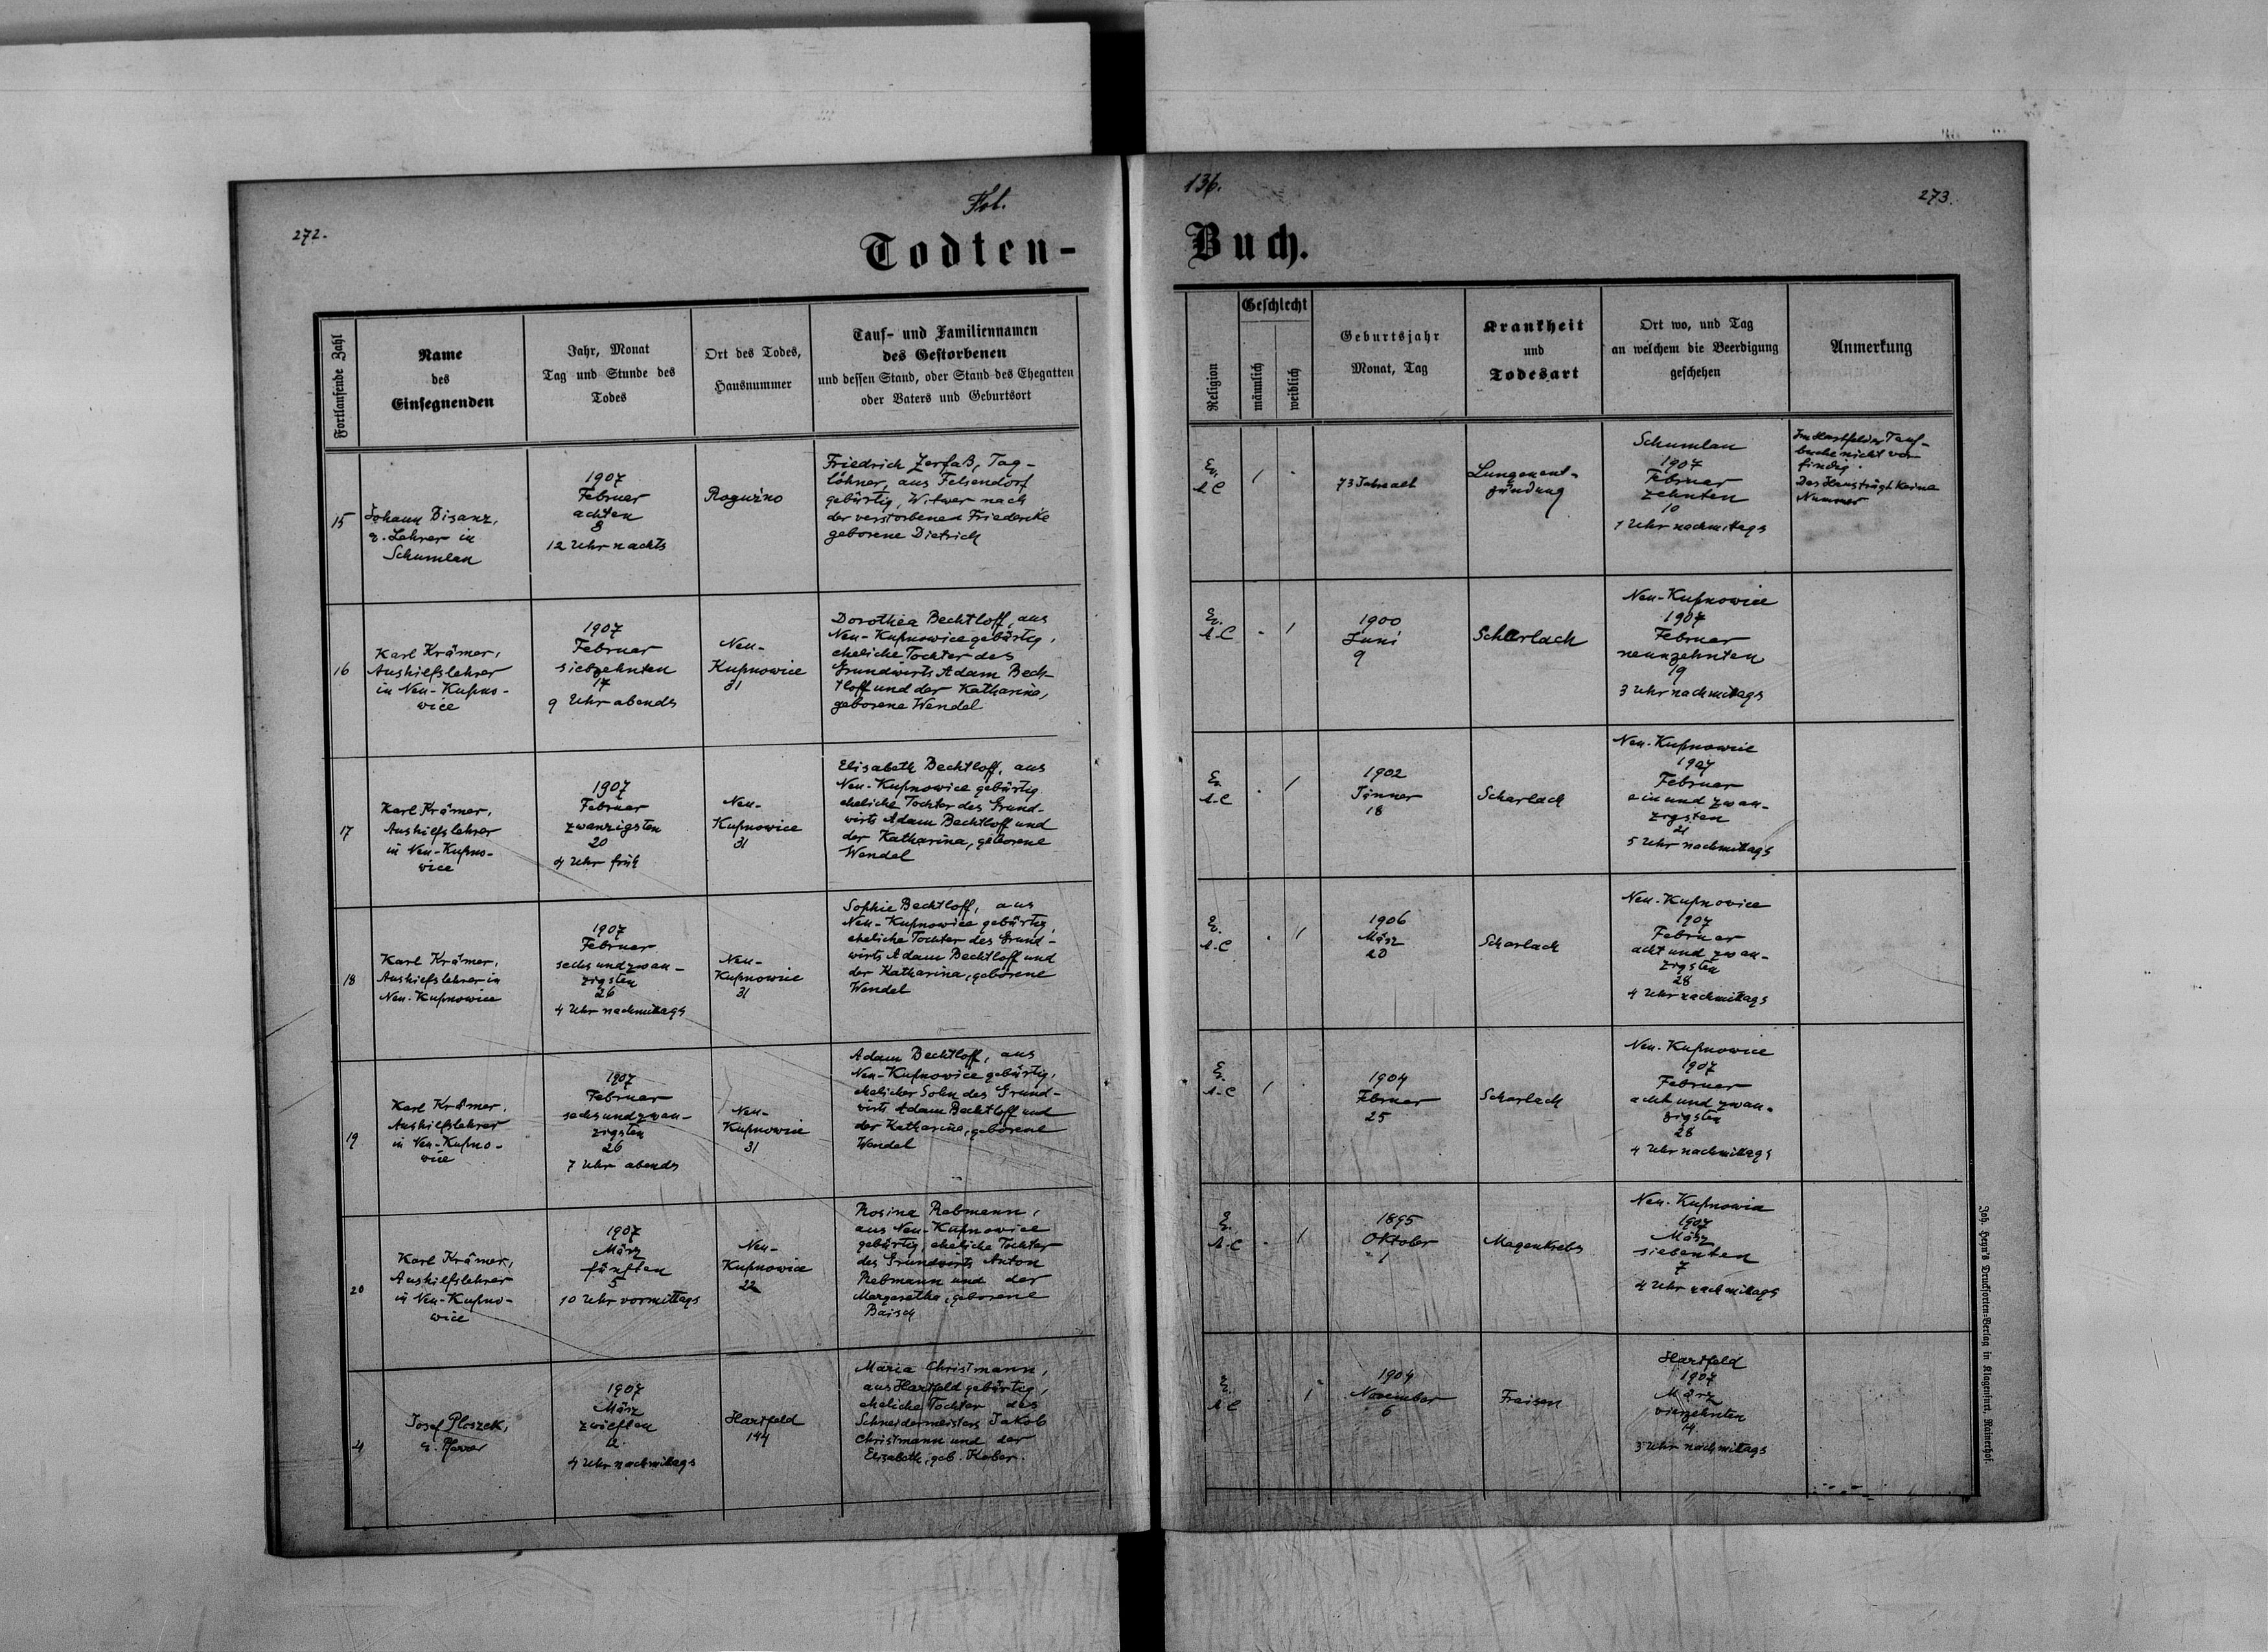 272.
Fol.
136.
273.
Todten-
Buch.
Fortlaufende Zahl
Name
des
Einsegnenden
Jahr, Monat
Tag und Stunde des
Todes
Ort des Todes,
Hausnummer
Tauf- und Familiennamen
des Gestorbenen
und dessen Stand, oder Stand des Ehegatten
oder Vaters und Geburtsort
Religion
Geschlecht
männlich
weiblich
Geburtsjahr
Monat, Tag
Krankheit
und
Todesart
Ort wo, und Tag
an welchem die Beerdigung
geschehen
Anmerkung
15
Johann Disanz,
e. Lehrer in
Schumlau
1907
Februar
achten
8
12 Uhr nachts
Roguźno
Friedrich Zerfaß, Tag-
löhner, aus Felsendorf
gebürtig, Witwer nach
der verstorbenen Friedericke
geborene Dietrich
Ev.
A.C
1
73 Jahre alt
Lungenent-
zündung
Schumlau
1907
Februar
zehnten
10
1 Uhr nachmittags
Im Hartfelder Tauf-
buche nicht vor-
findig.
Das Haus trägt keine
Nummer
16
Karl Krämer,
Aushilfslehrer
in Neu-Kupno-
wice
1907
Februar
siebzehnten
17
9 Uhr abends
Neu-
Kupnowice
31
Dorothea Bechtloff, aus
Neu-Kupnowice gebürtig,
eheliche Tochter des
Grundwirts Adam Bech-
tloff und der Katharina,
geborene Wendel
Ev.
A.C
1
1900
Juni
9
Scharlach
Neu-Kupnowice
1907
Februar
neunzehnten
19
3 Uhr nachmittags
17
Karl Krämer,
Aushilfslehrer
in Neu-Kupno-
wice
1907
Februar
zwanzigsten
20
4 Uhr früh
Neu-
Kupnowice
31
Elisabeth Bechtloff, aus
Neu-Kupnowice gebürtig
eheliche Tochter des Grund-
wirts Adam Bechtloff und
der Katharina, geborene
Wendel
Ev.
A.C
1
1902
Jänner
18
Scharlach
Neu-Kupnowice
1907
Februar
ein und zwan-
zigsten
21
5 Uhr nachmittags
18
Karl Krämer,
Aushilfslehrer in
Neu-Kupnowice
1907
Februar
sechs und zwan-
zigsten
26
4 Uhr nachmittags
Neu-
Kupnowice
31
Sophie Bechtloff, aus
Neu-Kupnowice gebürtig,
eheliche Tochter des Grund-
wirts Adam Bechtloff und
der Katharina, geborene
Wendel
Ev.
A.C
1
1906
März
20
Scharlach
Neu-Kupnowice
1907
Februar
acht und zwan-
zigsten
28
4 Uhr nachmittags
19
Karl Krämer,
Aushilfslehrer
in Neu-Kupno-
wice
1907
Februar
sechs und zwan-
zigsten
26
7 Uhr abends
Neu-
Kupnowice
31
Adam Bechtloff, aus
Neu-Kupnowice gebürtig,
ehelicher Sohn des Grund-
wirts Adam Bechtloff und
der Katharina, geborene
Wendel
Ev.
A.C
1
1904
Februar
25
Scharlach
Neu-Kupnowice
1907
Februar
acht und zwan-
zigsten
28
4 Uhr nachmittags
20
Karl Krämer,
Aushilfslehrer
in Neu-Kupno-
wice
1907
März
fünften
5
10 Uhr vormittags
Neu-
Kupnowice
22
Rosina Rebmann,
aus Neu-Kupnowice
gebürtig, eheliche Tochter
des Grundwirts Anton
Rebmann und der
Margaretha, geborene
Baisch
Ev.
A.C
1
1895
Oktober
1
Magenkrebs
Neu-Kupnowice
1907
März
siebenten
7
4 Uhr nachmittags
21
Josef Ploszek,
e. Pfarrer
1907
März
zwölften
12
4 Uhr nachmittags
Hartfeld
144
Maria Christmann,
aus Hartfeld gebürtig,
eheliche Tochter des
Schneidermeisters Jakob
Christmann und der
Elisabeth, geb. Kober.
Ev.
A.C
1
1904
November
6
Fraisen
Hartfeld
1907
März
vierzehnten
14
3 Uhr nachmittags
Joh. Heyn's Drucksorten-Verlag in Klagenfurt, Rainerhof.